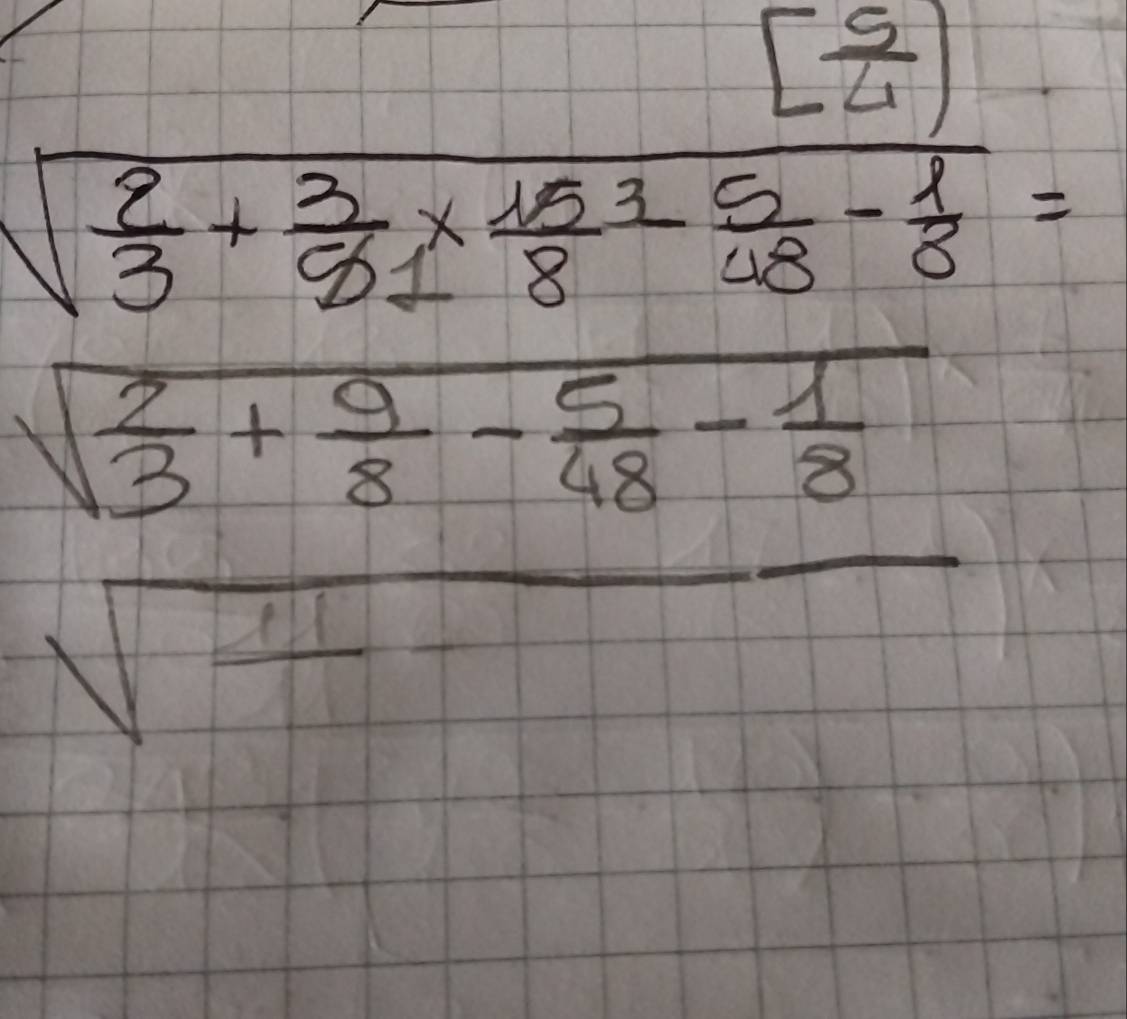 [5/4)
√(2/3 + 3/5 1 × 15/8 3 − 5/48 − 1/8) =
√(2/3 + 9/8 − 5/48 − 1/8)
√(11/ −